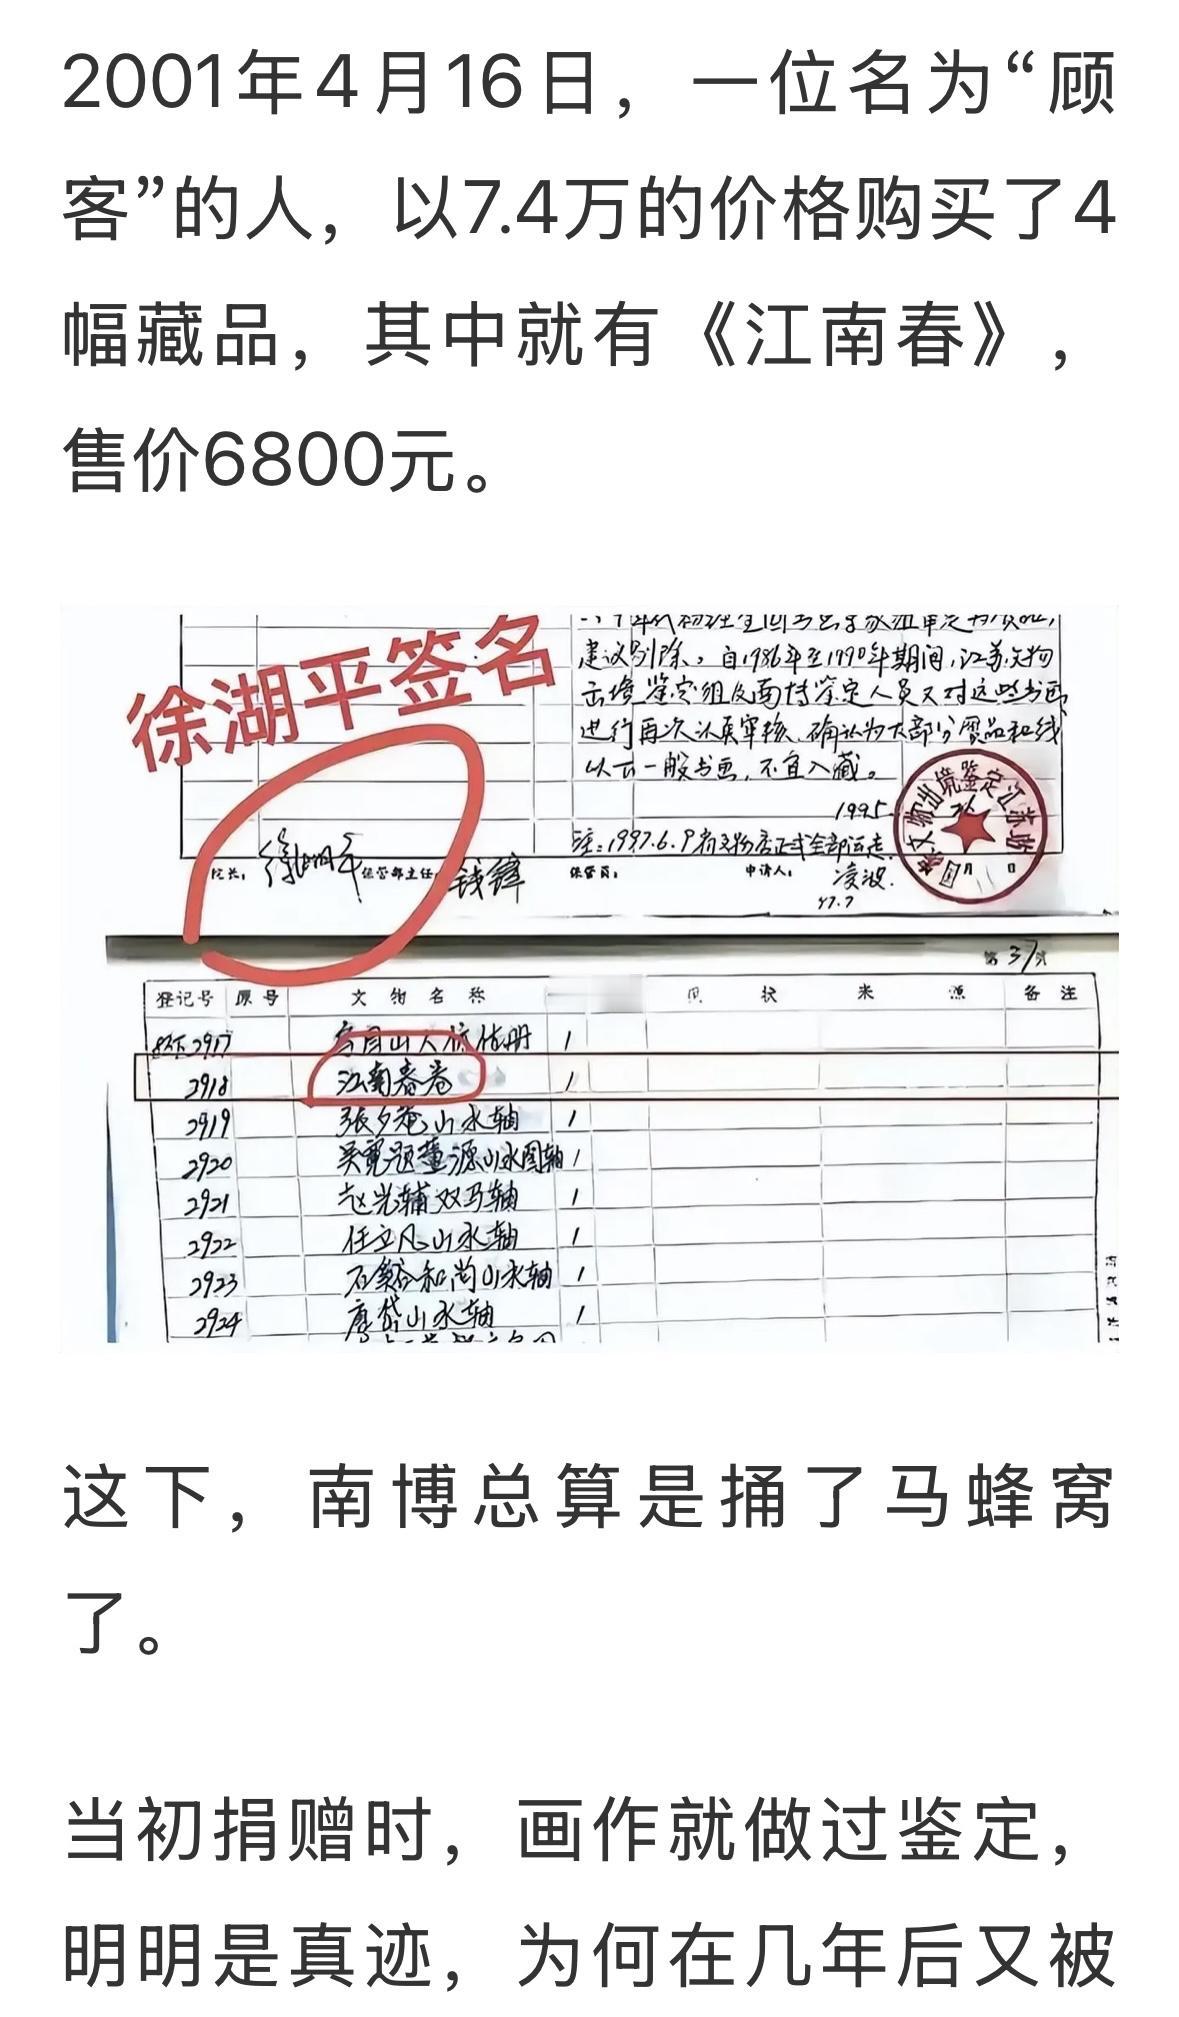 2001年4月16日，一位名为“顾
客”的人，以7.4万的价格购买了4
幅藏品，其中就有《江南春》，
售价6800元。
徐湖平签名
建议剔除，自1986年至1990年期间，江苏文物
出境鉴定组及南博鉴定人员又对这些书画
进行再次认真审核，确认为大部分赝品和线
以下一般书画，不宜入藏。
1995.
注：1997.6.9 全部运走.
院长： 徐湖平 保管部主任： 钱锋 保管员： 申请人： 凌波.
97.7
第37页
登记号 原号 文物名称 现状 来源 备注
2917 1
2918 江南春卷 1
2919 張夕菴山水轴 1
2920 吴寛题董源山水图轴 1
2921 赵光辅双马轴 1
2922 任立凡山水轴 1
2923 石谿和尚山水轴 1
2924 唐岱山水轴 1
这下，南博总算是捅了马蜂窝
了。
当初捐赠时，画作就做过鉴定，
明明是真迹，为何在几年后又被